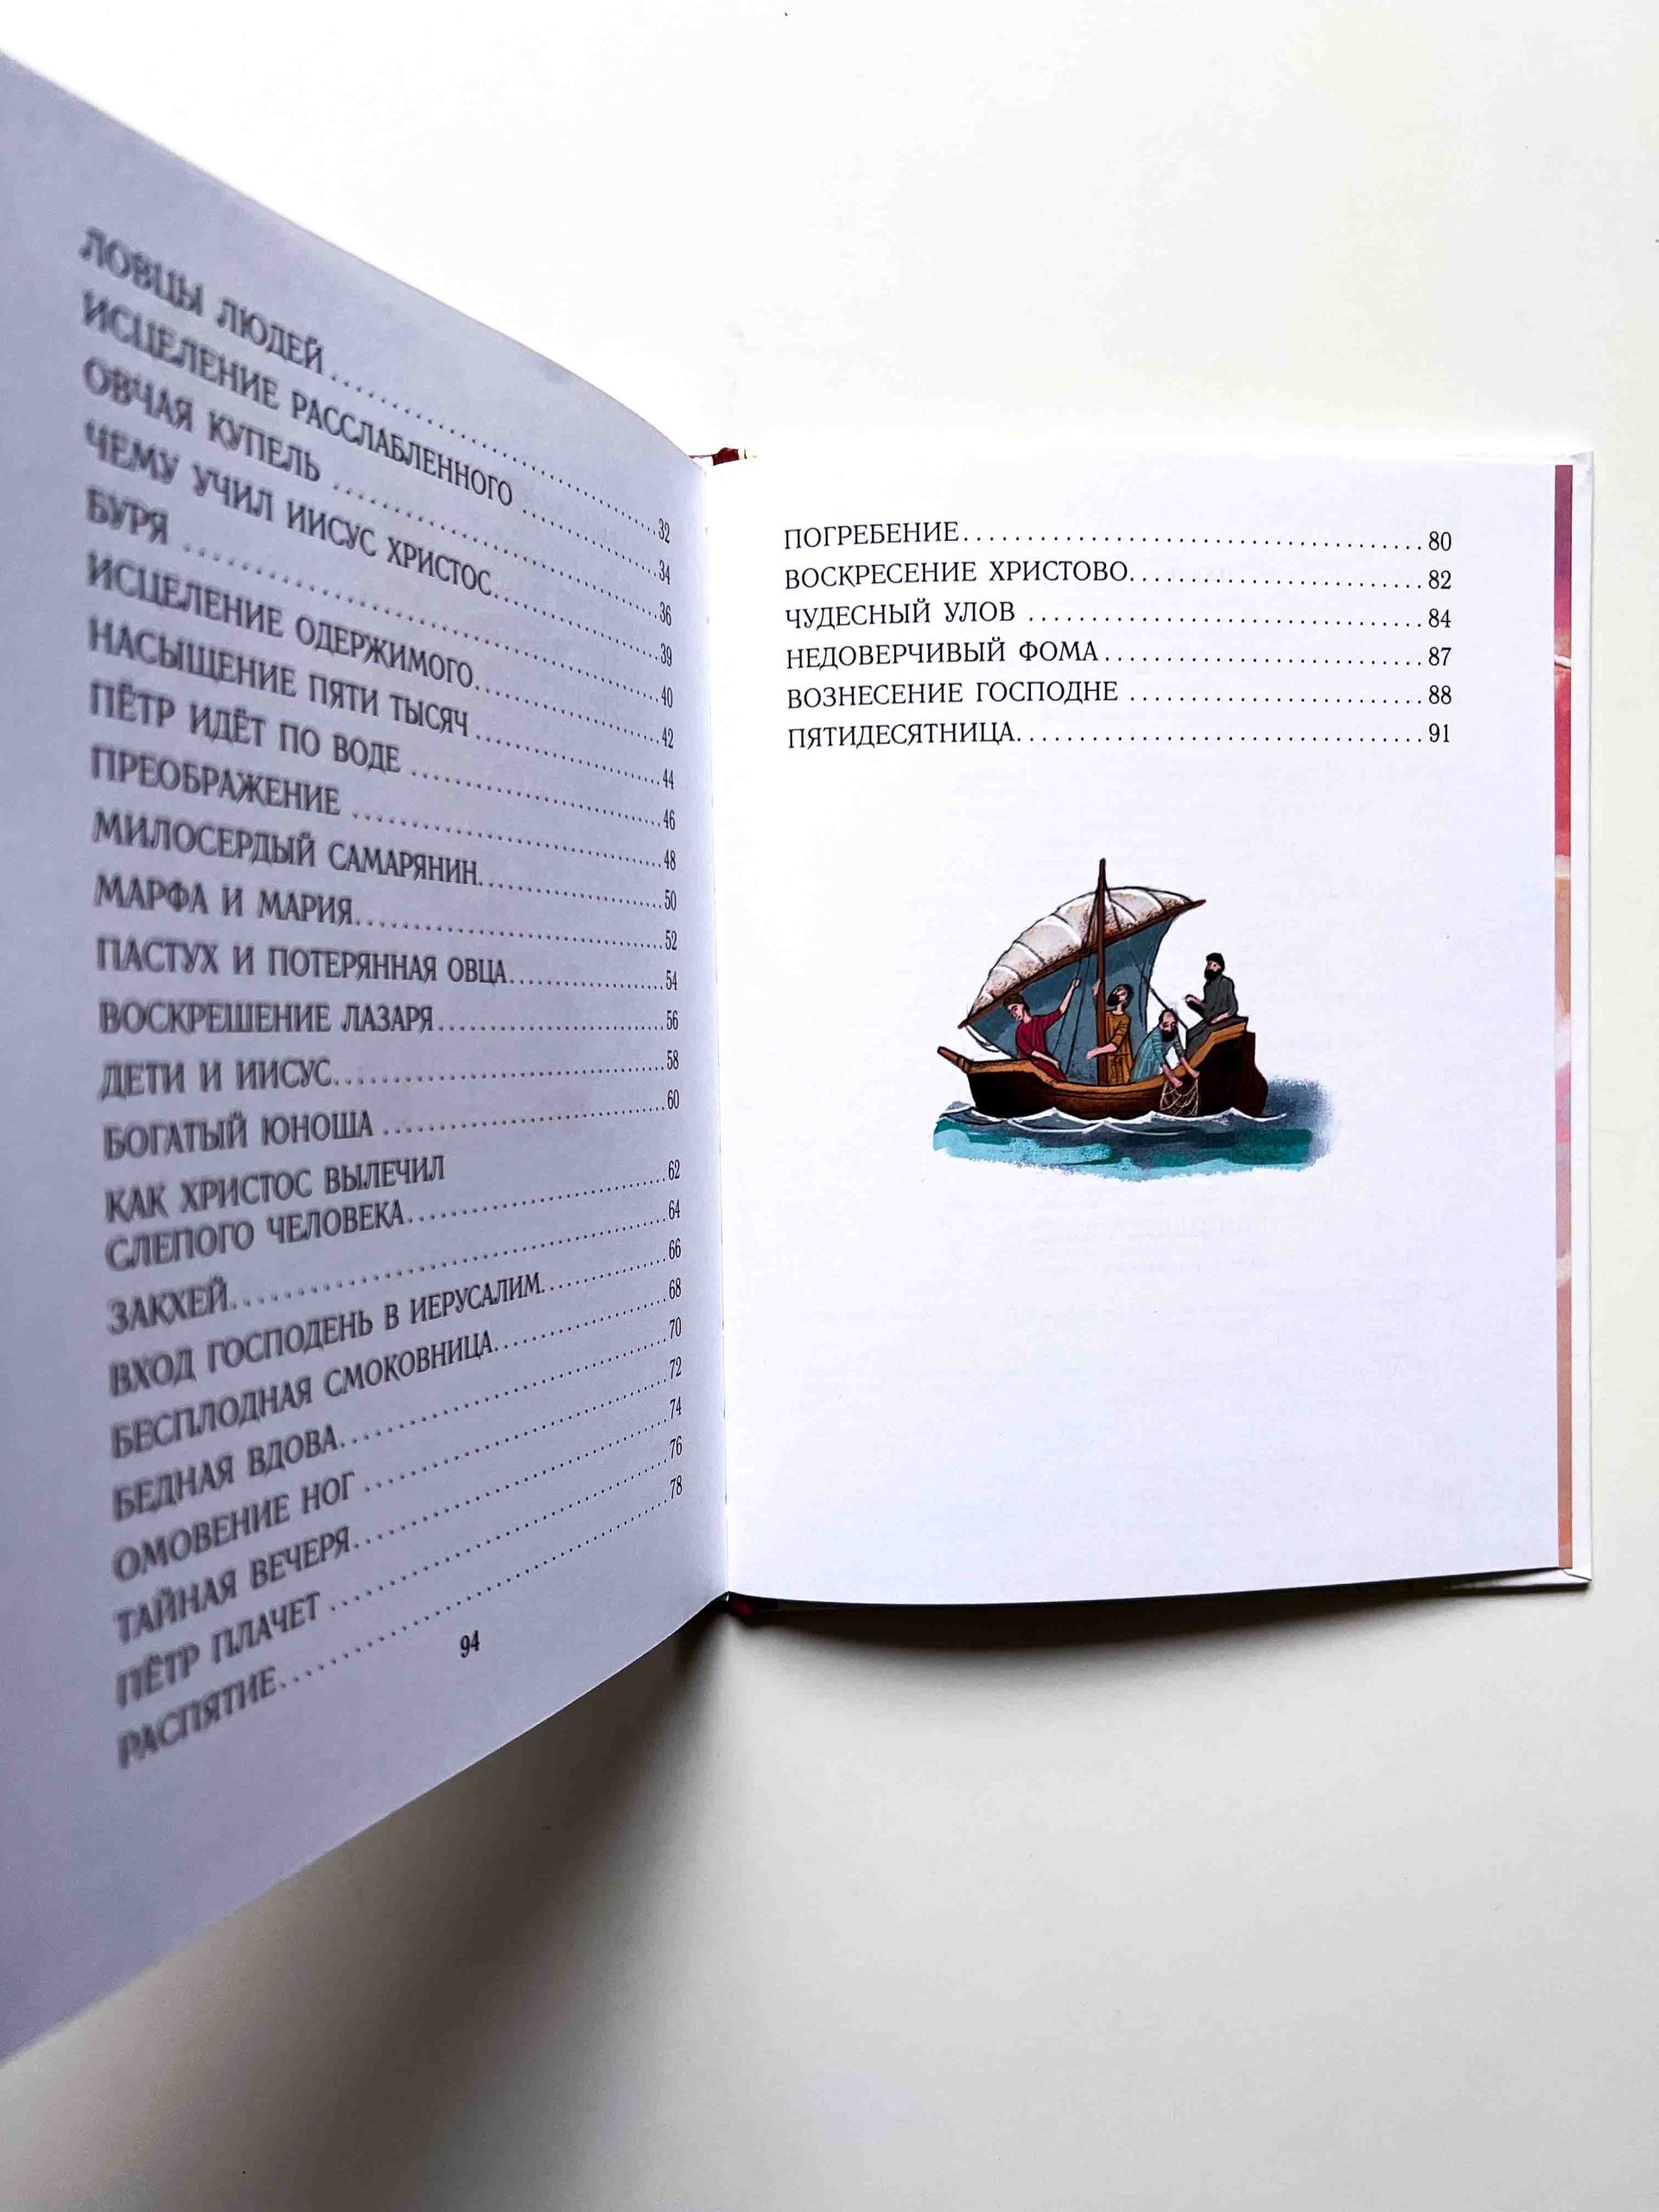 ЛОВЦЫ ЛЮДЕЙ ........ 32
ИСЦЕЛЕНИЕ РАССЛАБЛЕННОГО ........ 34
ОВЧАЯ КУПЕЛЬ ........ 36
ЧЕМУ УЧИЛ ИИСУС ХРИСТОС ........ 39
БУРЯ ........ 40
ИСЦЕЛЕНИЕ ОДЕРЖИМОГО ........ 42
НАСЫЩЕНИЕ ПЯТИ ТЫСЯЧ ........ 44
ПЁТР ИДЁТ ПО ВОДЕ ........ 46
ПРЕОБРАЖЕНИЕ ........ 48
МИЛОСЕРДЫЙ САМАРЯНИН ........ 50
МАРФА И МАРИЯ ........ 52
ПАСТУХ И ПОТЕРЯННАЯ ОВЦА ........ 54
ВОСКРЕШЕНИЕ ЛАЗАРЯ ........ 56
ДЕТИ И ИИСУС ........ 58
БОГАТЫЙ ЮНОША ........ 60
КАК ХРИСТОС ВЫЛЕЧИЛ
СЛЕПОГО ЧЕЛОВЕКА ........ 62
ЗАКХЕЙ ........ 64
ВХОД ГОСПОДЕНЬ В ИЕРУСАЛИМ ........ 66
БЕСПЛОДНАЯ СМОКОВНИЦА ........ 68
БЕДНАЯ ВДОВА ........ 70
ОМОВЕНИЕ НОГ ........ 72
ТАЙНАЯ ВЕЧЕРЯ ........ 74
ПЁТР ПЛАЧЕТ ........ 76
РАСПЯТИЕ ........ 78
94
ПОГРЕБЕНИЕ ........ 80
ВОСКРЕСЕНИЕ ХРИСТОВО ........ 82
ЧУДЕСНЫЙ УЛОВ ........ 84
НЕДОВЕРЧИВЫЙ ФОМА ........ 87
ВОЗНЕСЕНИЕ ГОСПОДНЕ ........ 88
ПЯТИДЕСЯТНИЦА ........ 91